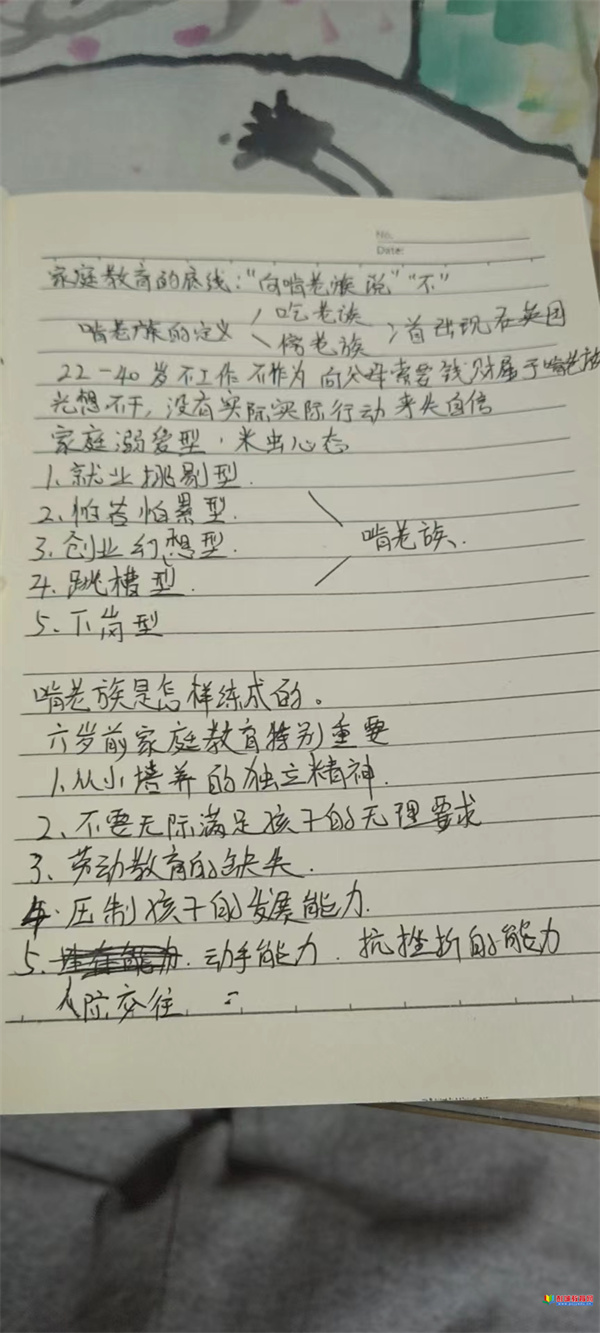 No.
Date:
家庭教育的底线："向啃老族说""不"
吃老族
啃老族的定义 傍老族 首出现在英国
22-40岁不工作不作为向父母索要钱财属于啃老族
光想不干，没有实际实际行动 丧失自信
家庭溺爱型，米虫心态
1、就业挑剔型.
2、怕苦怕累型.
3、创业幻想型. 啃老族、
4、跳槽型.
5、下岗型
啃老族是怎样练成的。
六岁前家庭教育特别重要
1、从小培养的独立精神.
2、不要无际满足孩子的无理要求
3、劳动教育的缺失.
4.压制孩子的发展能力.
5. 动手能力. 抗挫折的能力
人际交往